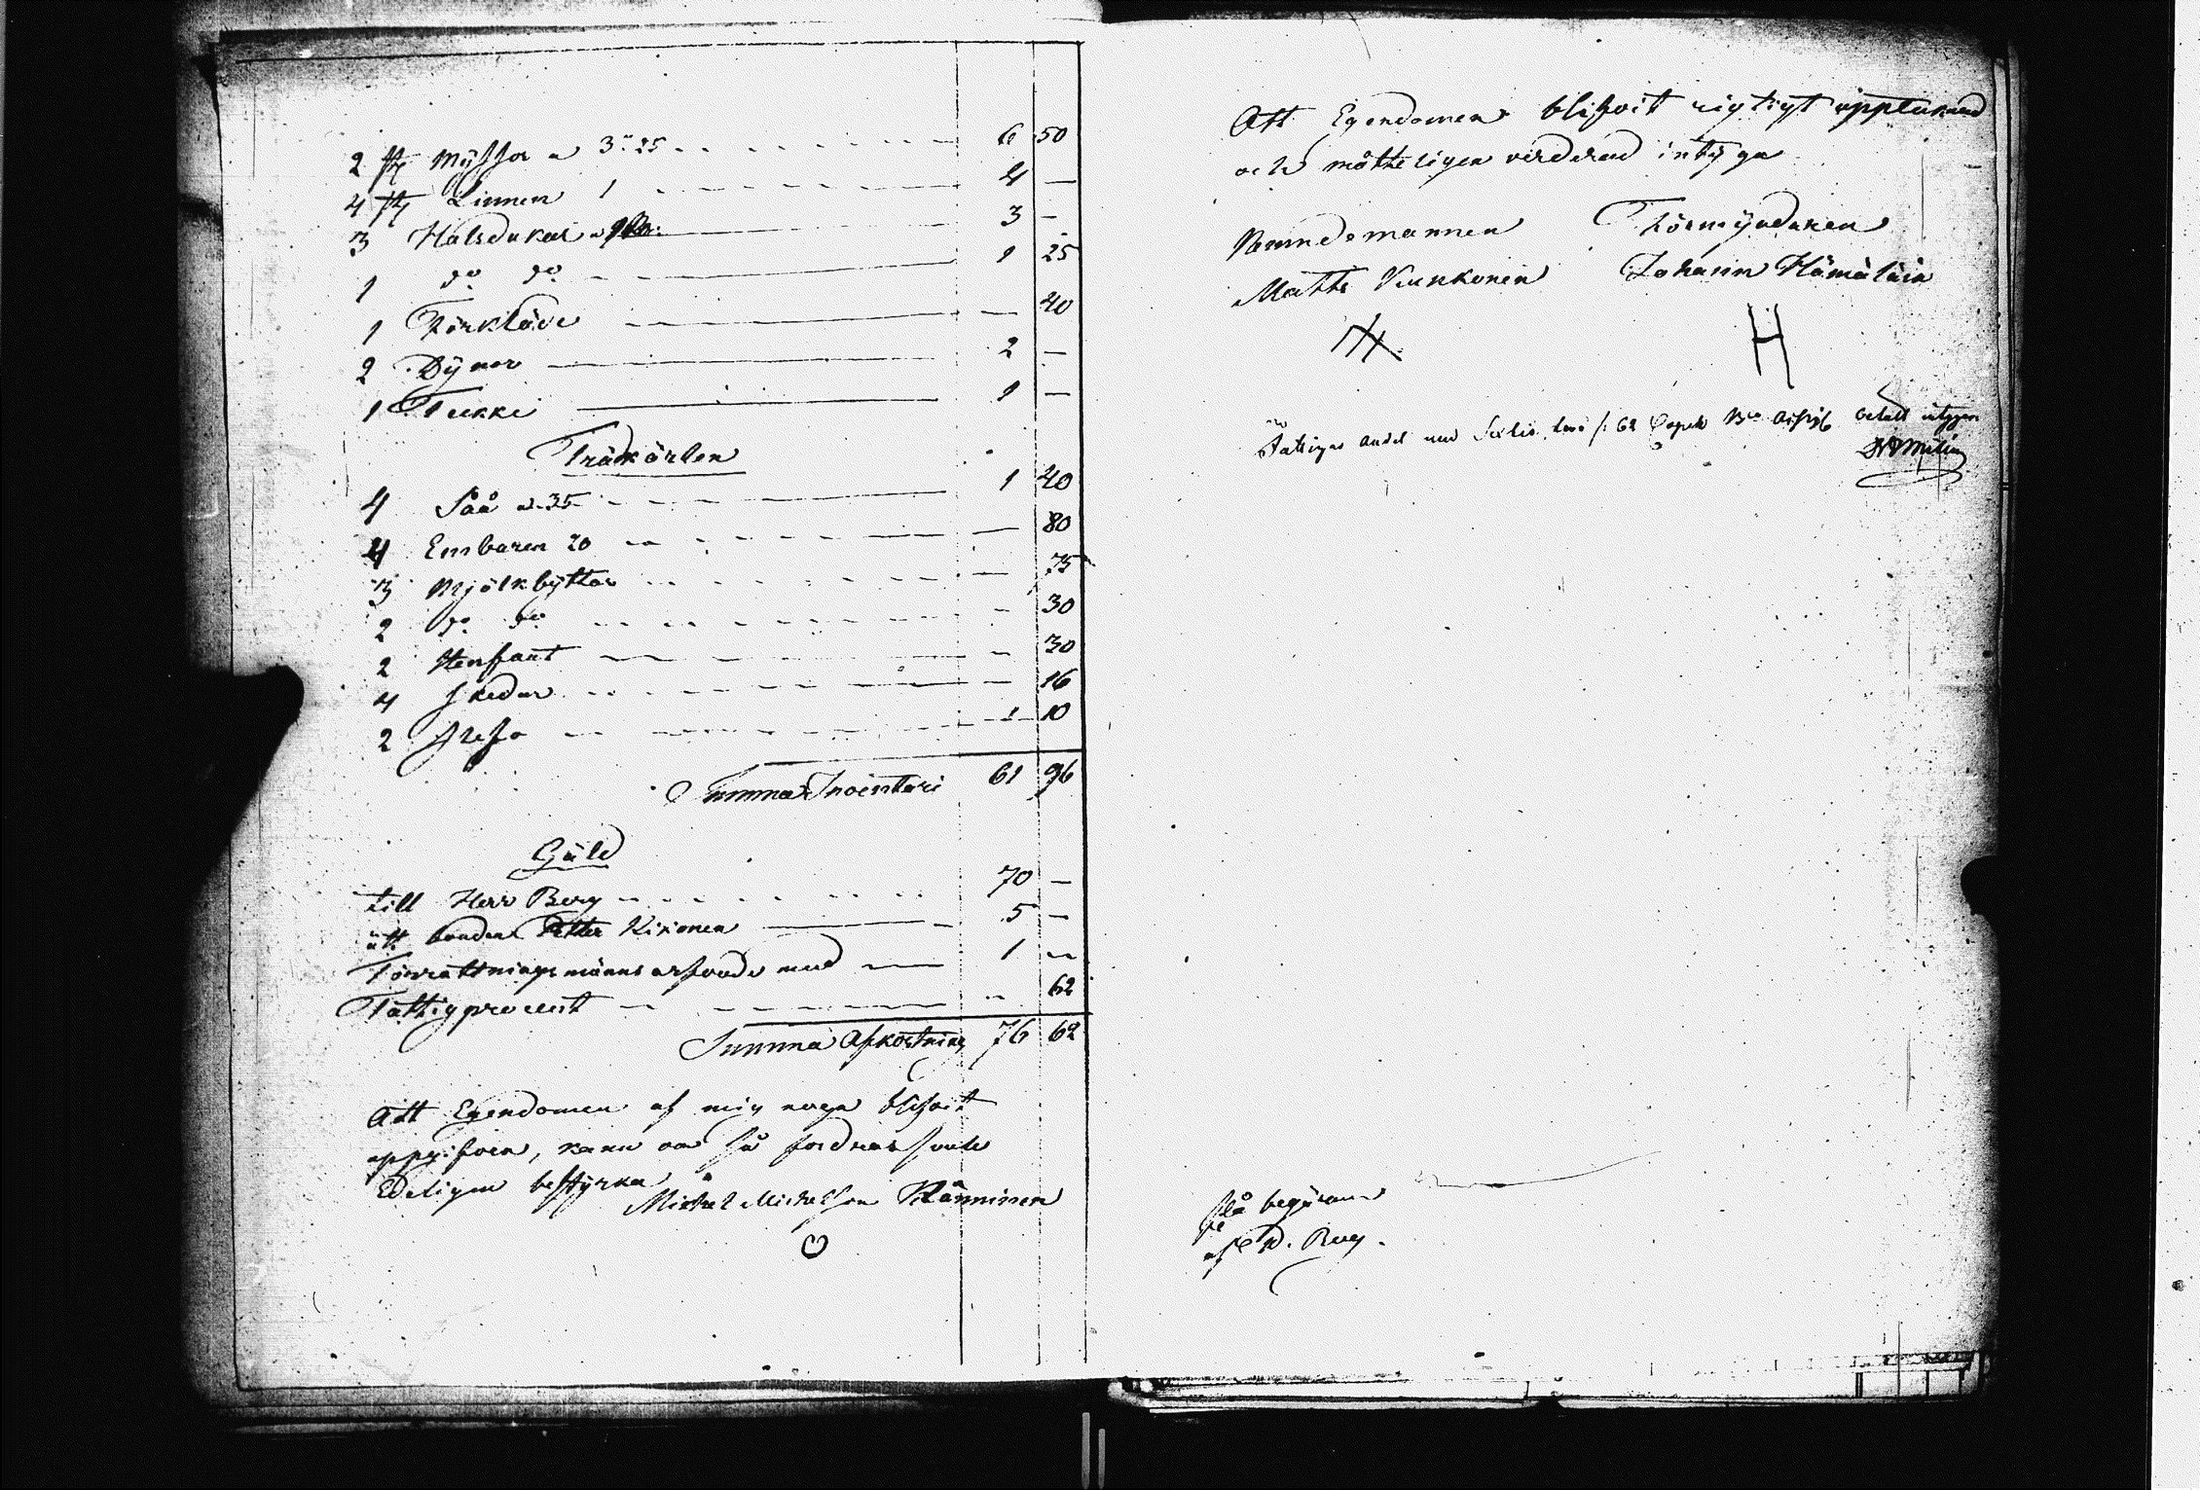 2 st Myssor a 3: 25 6 50
4 st Linnen 1 4 —
3 Halsdukar a 3 —
1 do do 1 25
1 Förkläde — 40
2 Dynor 2 —
1 Teekki 1 —
Trädkärlen
4 Såå a 35 1 40
4 Embaren 20 — 80
3 Mjölkbyttor — 75
2 do do — 30
2 Stenfaat — 30
4 Skedar — 16
2 1 10
Summa Inventari 61 96
Gäld
till Herr Berg 70 —
åt bonden Petter Kikonen 5 —
Förrättningsmäns arfvode med 1 —
Fattigprocent — 62
Summa Afkortning 76 62
Att Egendomen af mig noga blifvit
uppgifven, kann om så fordras skule
Edeligen bestyrka
Michel Michelson Ränninen
Att Egendomen blifvit rigtigt upptuknad
och mötteligen värderad intyga
Nämndemannen Förmyndaren
Matts Kunkonen Johann Hämäläin
H
Fattiges andel med Sextio två /: 62 Copek Bco Assig betalt intygas
På begäran
af D. Berg.